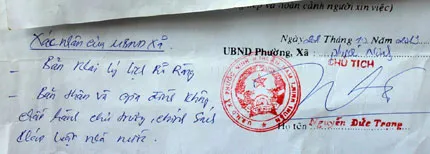 và hoàn cảnh người xin việc)
Xác nhận của UBND Xã
Ngày Tháng 12 năm
UBND Phường, Xã Phước Ninh
CHỦ TỊCH
- Bản Khai lý lịch Rõ Ràng
- Bản thân và gia đình không
chấp hành chủ trương, chính sách
pháp luật nhà nước.
Họ tên Nguyễn Đức Trang